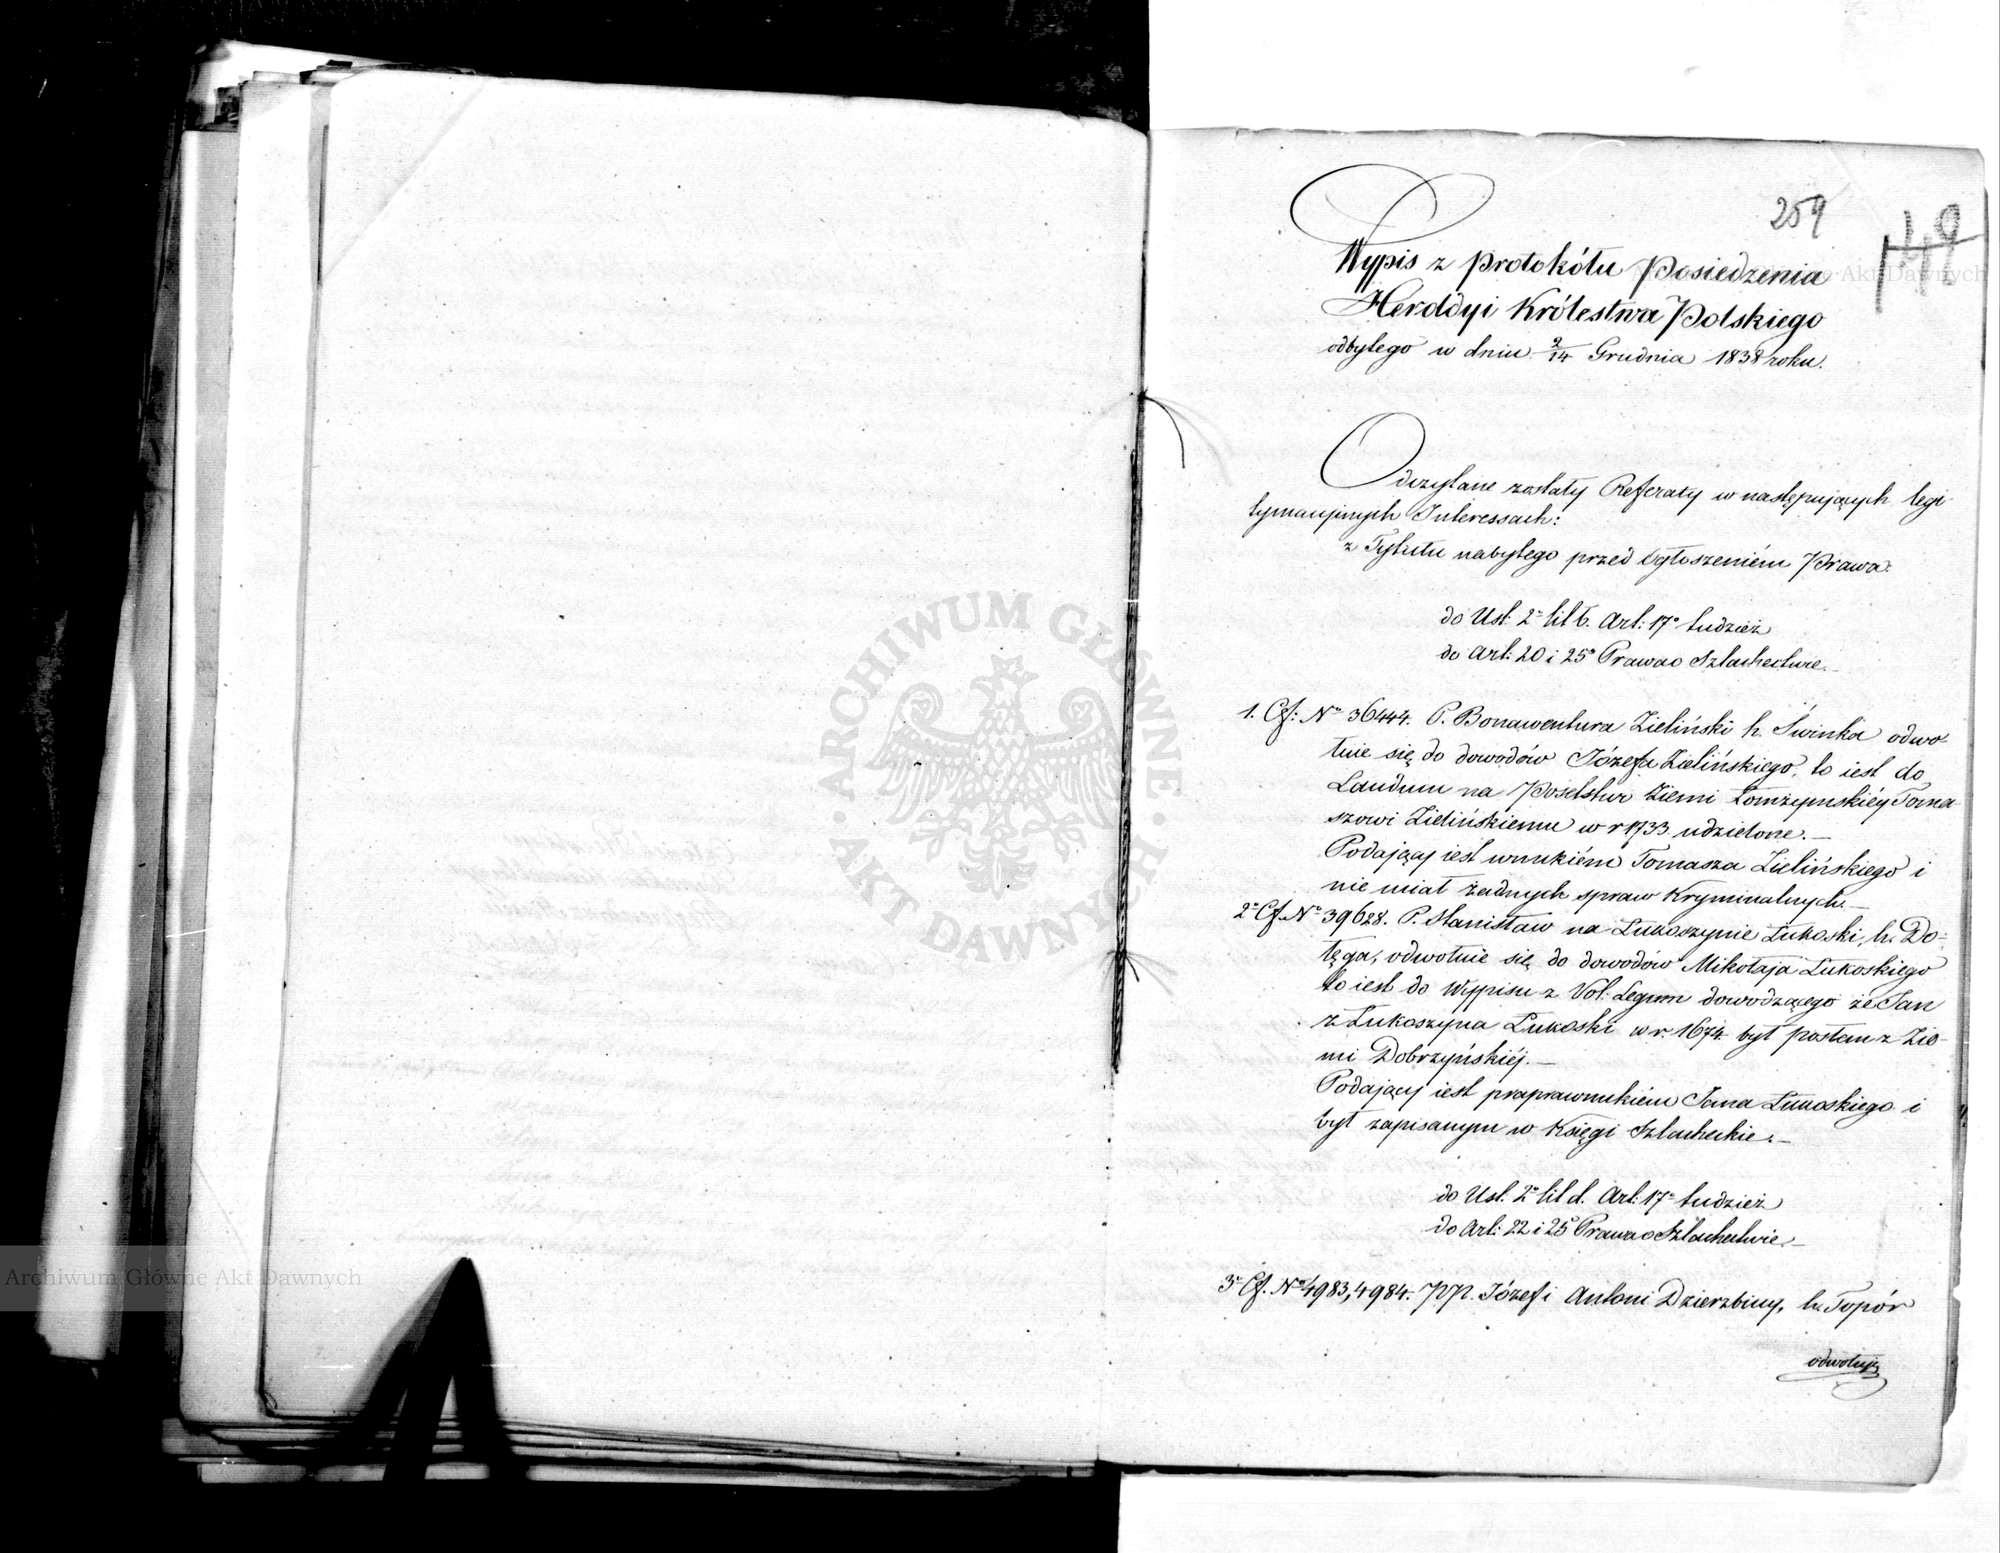 259
Wypis z protokółu Posiedzenia
Heroldyi Królestwa Polskiego
odbytego w dniu 2/14 Grudnia 1838 roku.
Odczytane zostały Referaty w następujących legi
tymacyjnych Interessach:
z Tytułu nabytego przed Ogłoszeniém Prawa:
do Ust: 2º lit b. Art: 17º tudzież
do Art: 20 i 25º Prawa o Szlachectwie.
1. Cf: Nº 36444. P. Bonawentura Zieliński h. Świnka odwo-
łuie się do dowodów Józefa Zielińskiego, to iest do
Laudum na Poselstwo Ziemi Łomżyńskiéy Toma
szowi Zielińskiemu w r 1733 udzielone.
Podający iest wnukiém Tomasza Zielińskiego i
nie miał żadnych spraw Kryminalnych.
2º Cf. Nº 39628. P. Stanisław na Łukoszynie Łukoski, h. Do-
łęga, odwołuie się do dowodów Mikołaja Łukoskiego
to iest do Wypisu z Vol: Legum dowodzącego że Jan
z Łukoszyna Łukoski w r. 1674 był posłem z Zie-
mi Dobrzyńskiéj.
Podający iest praprawnukiém Jana Łukoskiego i
był zapisanym w Księgi Szlacheckie.
do Ust. 2º lit d. Art: 17º tudzież
do Art: 22 i 25º Prawa o Szlachectwie.
3º Cf. Nº 4983, 4984. PP. Józef i Antoni Dzierzbiccy, h. Topór
odwołują
ARCHIWUM GŁÓWNE AKT DAWNYCH
Archiwum Główne Akt Dawnych